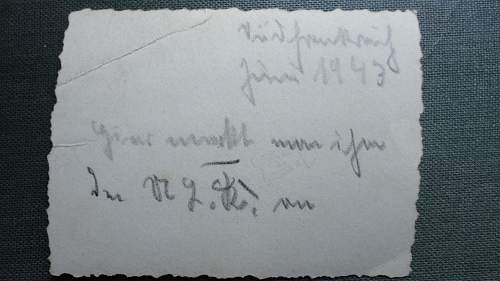 Südfrankreich
Juni 1943
Hier merkt man ihm
den
an